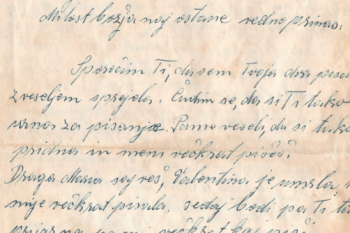 Milost božja naj ostane vedno pri nas.
Sporočim Ti, da sem Tvoja dva pisma
z veseljem sprejela. Čudim se, da si Ti tako
urna za pisanje. Samo veseli, da si tako
pridna in meni večkrat pišeš.
Draga Mana saj veš, Valentina je umrla,
mi je večkrat pisala. sedaj bodi pa Ti ta
prijazna meni večkrat kaj